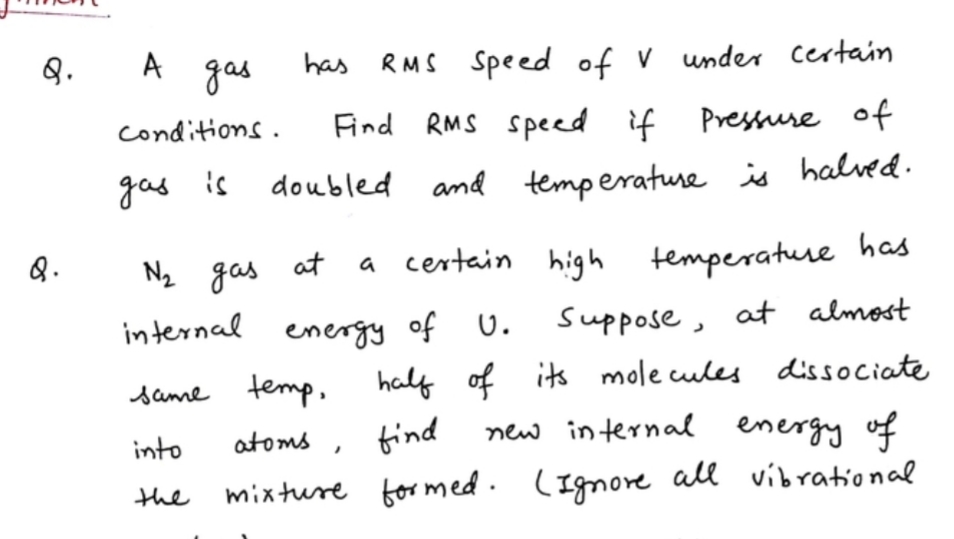 Q. A gas has RMS speed of V under certain
conditions. Find RMS speed if Pressure of
gas is doubled and temperature is halved.
Q. N₂ gas at a certain high temperature has
internal energy of U. Suppose, at almost
same temp, half of its molecules dissociate
into atoms, find new internal energy of
the mixture formed. (Ignore all vibrational